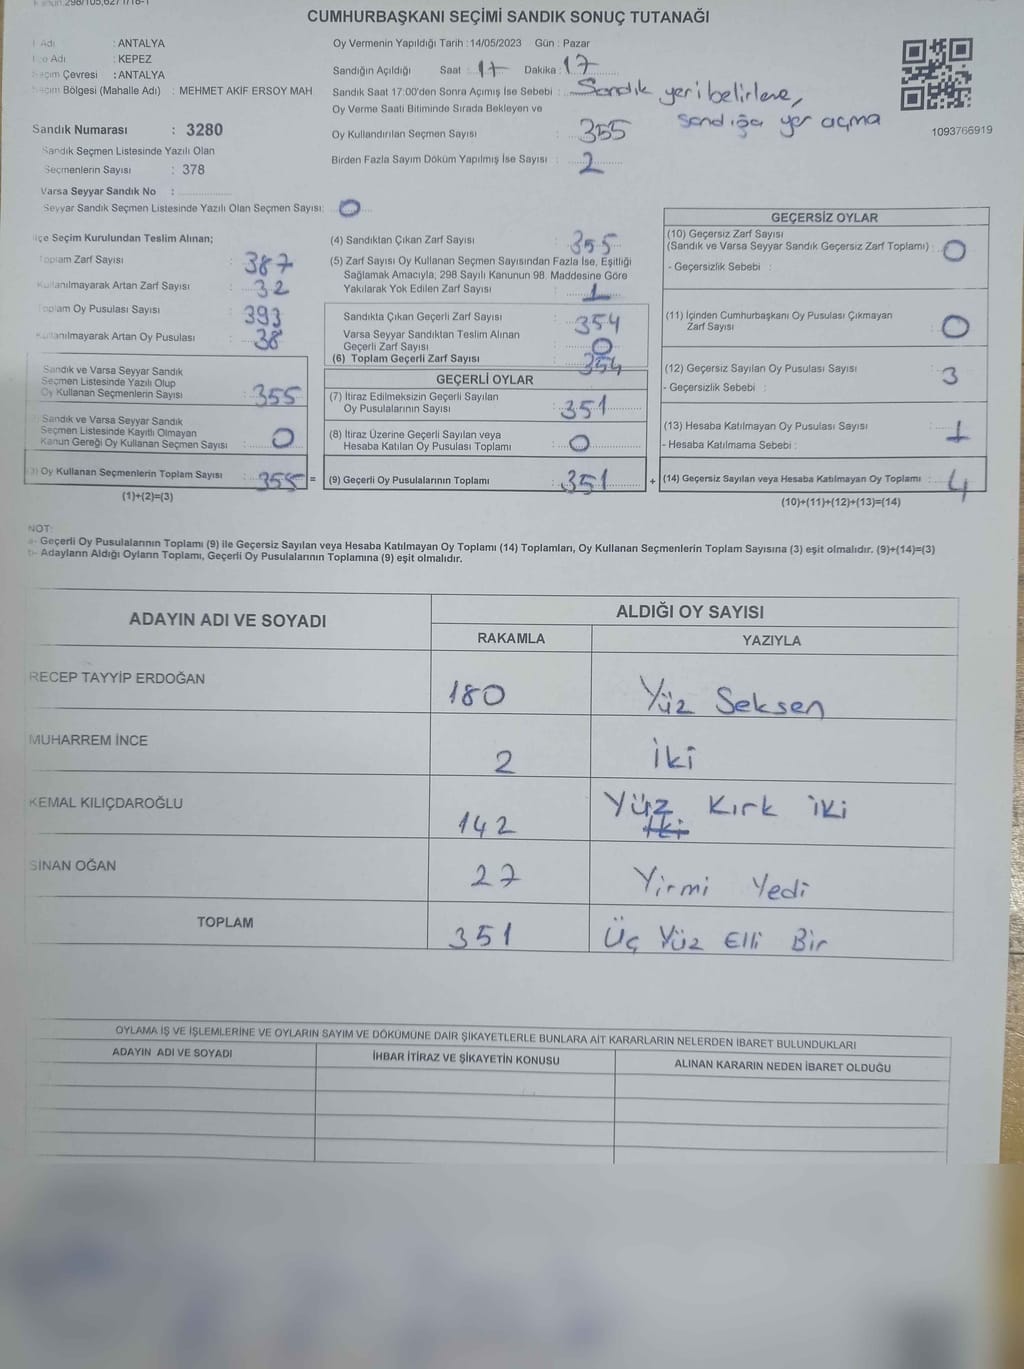 CUMHURBAŞKANI SEÇİMİ SANDIK SONUÇ TUTANAĞI
Adı : ANTALYA
Adı : KEPEZ
Seçim Çevresi : ANTALYA
Seçim Bölgesi (Mahalle Adı) : MEHMET AKİF ERSOY MAH
Sandık Numarası : 3280
Sandık Seçmen Listesinde Yazılı Olan
Seçmenlerin Sayısı : 378
Varsa Seyyar Sandık No :
Seyyar Sandık Seçmen Listesinde Yazılı Olan Seçmen Sayısı: 0
Oy Vermenin Yapıldığı Tarih : 14/05/2023 Gün : Pazar
Sandığın Açıldığı Saat : 17 Dakika : 17
Sandık Saat 17:00'den Sonra Açımış İse Sebebi : Sandık yeri belirleme,
Oy Verme Saati Bitiminde Sırada Bekleyen ve sandığa yer açma
Oy Kullandırılan Seçmen Sayısı : 355
Birden Fazla Sayım Döküm Yapılmış İse Sayısı : 2
1093766919
İlçe Seçim Kurulundan Teslim Alınan;
Toplam Zarf Sayısı : 387
Kullanılmayarak Artan Zarf Sayısı : 32
Toplam Oy Pusulası Sayısı : 393
Kullanılmayarak Artan Oy Pusulası : 38
Sandık ve Varsa Seyyar Sandık
Seçmen Listesinde Yazılı Olup
Oy Kullanan Seçmenlerin Sayısı : 355
Sandık ve Varsa Seyyar Sandık
Seçmen Listesinde Kayıtlı Olmayan
Kanun Gereği Oy Kullanan Seçmen Sayısı : 0
(3) Oy Kullanan Seçmenlerin Toplam Sayısı : 355 =
(1)+(2)=(3)
(4) Sandıktan Çıkan Zarf Sayısı : 355
(5) Zarf Sayısı Oy Kullanan Seçmen Sayısından Fazla İse, Eşitliği
Sağlamak Amacıyla, 298 Sayılı Kanunun 98. Maddesine Göre
Yakılarak Yok Edilen Zarf Sayısı : 1
Sandıkta Çıkan Geçerli Zarf Sayısı : 354
Varsa Seyyar Sandıktan Teslim Alınan
Geçerli Zarf Sayısı : 0
(6) Toplam Geçerli Zarf Sayısı : 354
GEÇERLİ OYLAR
(7) İtiraz Edilmeksizin Geçerli Sayılan
Oy Pusulalarının Sayısı : 351
(8) İtiraz Üzerine Geçerli Sayılan veya
Hesaba Katılan Oy Pusulası Toplamı : 0
(9) Geçerli Oy Pusulalarının Toplamı : 351 +
GEÇERSİZ OYLAR
(10) Geçersiz Zarf Sayısı
(Sandık ve Varsa Seyyar Sandık Geçersiz Zarf Toplamı) : 0
- Geçersizlik Sebebi :
(11) İçinden Cumhurbaşkanı Oy Pusulası Çıkmayan
Zarf Sayısı : 0
(12) Geçersiz Sayılan Oy Pusulası Sayısı : 3
- Geçersizlik Sebebi :
(13) Hesaba Katılmayan Oy Pusulası Sayısı : 1
- Hesaba Katılmama Sebebi :
(14) Geçersiz Sayılan veya Hesaba Katılmayan Oy Toplamı : 4
(10)+(11)+(12)+(13)=(14)
NOT:
a- Geçerli Oy Pusulalarının Toplamı (9) ile Geçersiz Sayılan veya Hesaba Katılmayan Oy Toplamı (14) Toplamları, Oy Kullanan Seçmenlerin Toplam Sayısına (3) eşit olmalıdır. (9)+(14)=(3)
b- Adayların Aldığı Oyların Toplamı, Geçerli Oy Pusulalarının Toplamına (9) eşit olmalıdır.
ADAYIN ADI VE SOYADI
ALDIĞI OY SAYISI
RAKAMLA YAZIYLA
RECEP TAYYİP ERDOĞAN 180 Yüz Seksen
MUHARREM İNCE 2 İki
KEMAL KILIÇDAROĞLU 142 Yüz Kırk iki
SİNAN OĞAN 27 Yirmi Yedi
TOPLAM 351 Üç Yüz Elli Bir
OYLAMA İŞ VE İŞLEMLERİNE VE OYLARIN SAYIM VE DÖKÜMÜNE DAİR ŞİKAYETLERLE BUNLARA AİT KARARLARIN NELERDEN İBARET BULUNDUKLARI
ADAYIN ADI VE SOYADI İHBAR İTİRAZ VE ŞİKAYETİN KONUSU ALINAN KARARIN NEDEN İBARET OLDUĞU